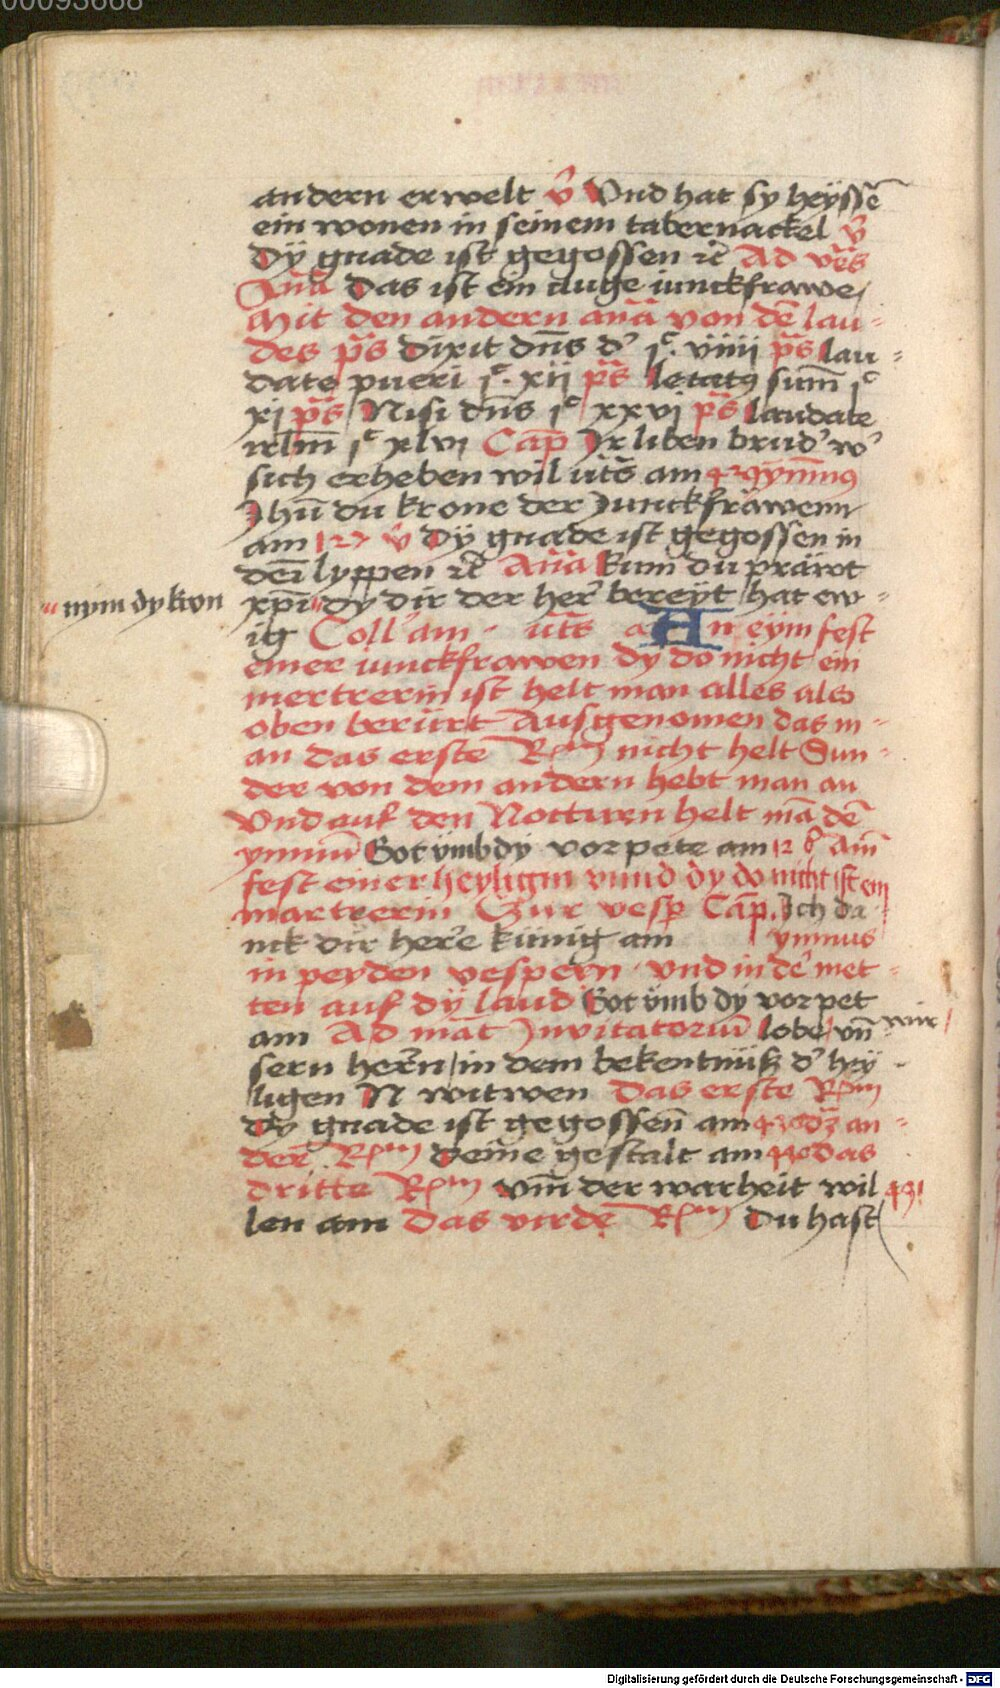 00093668
andern erwelt v̄ Vnd hat sy heÿssē
ein wonen in seinem tabernackel v̄
Dÿ gnade ist gegossen ꝛc̄ Ad vēs
Anā Das ist ein cluge iunckfrawe
Mit den andern anā von dē lau-
des p̄s Dixit dn̄s d' jᶜ. viiij p̄s lau-
date pueri jᶜ. xij p̄s letatꝯ sum̄ jᶜ
xj p̄s Nisi dn̄s jᶜ xxvj p̄s laudate
irlm̄ jᶜ xlvj Cap̄ Ir liben brud' w'
sich erheben wil vts̄ am 42 ȳmnꝯ
Ihū du krone der Junckfrawenn
am 127 v̄ Dÿ gnade ist gegossen in
dein̄ lyppen ꝛc̄ Anā kum du präwt
nym dy kron
xp̄i dy dir der her' bereyt hat ew-
ig Coll' am vts̄ An eym fest
einer iunckfrawen dy do nicht ein
mertrerin ist helt man alles als
oben berürt Ausgenomen das m-
an das erste Rᵐ nicht helt Sun-
der von dem andern hebt man an
Vnd auf den Notturn helt mā dē
ymnū Got ÿmb dy vorpete am 12 Am̄
fest einer heyligin vnnd dy do nicht ist ein
martrerin Czur vesp Cap̄. Ich da-
nck dir here künig am ymnus
in peyden vespern vnd in de' met-
ten auf dÿ laud Got ÿmb dy vorpet
am Ad mat̄ Inuitatoriū lobe wir vn̄-
sern hern in dem bekentnüß d' heÿ-
ligen N witwen Das erste Rᵐ
Dy gnade ist gegossen̄ am das an-
der Rᵐ Deine gestalt am das
dritte Rᵐ Vm̄ der warheit wil
len am Das virde Rᵐ Du hast
Digitalisierung gefördert durch die Deutsche Forschungsgemeinschaft - DFG